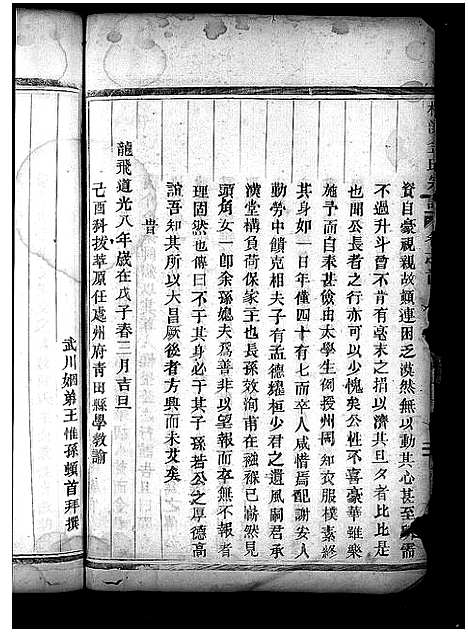 資自豪視親故顛連困乏漠然無以動其心甚至所需
不過升斗曾不肯有毫末之捐以濟其旦夕者比比是
也聞公長者之行亦可以少愧矣公性不喜豪華雖樂
施予而自奉甚儉由太學生例授州同知衣服樸素終
其身如一日年僅四十有七而卒人咸惜焉配謝安人
勤勞中饋克相夫子有孟德耀桓少君之遺風嗣君承
漢堂構負荷保家主也長孫效洵甫在襁褓已嶄然見
頭角女一即余孫媳夫為善非以望報而卒無不報者
理固然也傳曰不于其身必于其子孫若公之厚德高
誼吾知其所以大昌厥後者方興而未艾矣
昔
龍飛道光八年歲在戊子春三月吉旦
己酉科拔萃原任處州府青田縣學教諭
武川姻弟王惟孫頓首拜撰